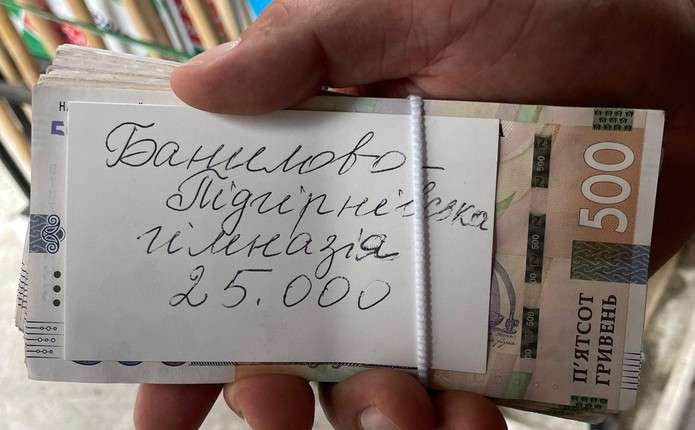 Банилово-
Підгірнівська
гімназія
25.000
500
П'ЯТСОТ
ГРИВЕНЬ
500
500
500